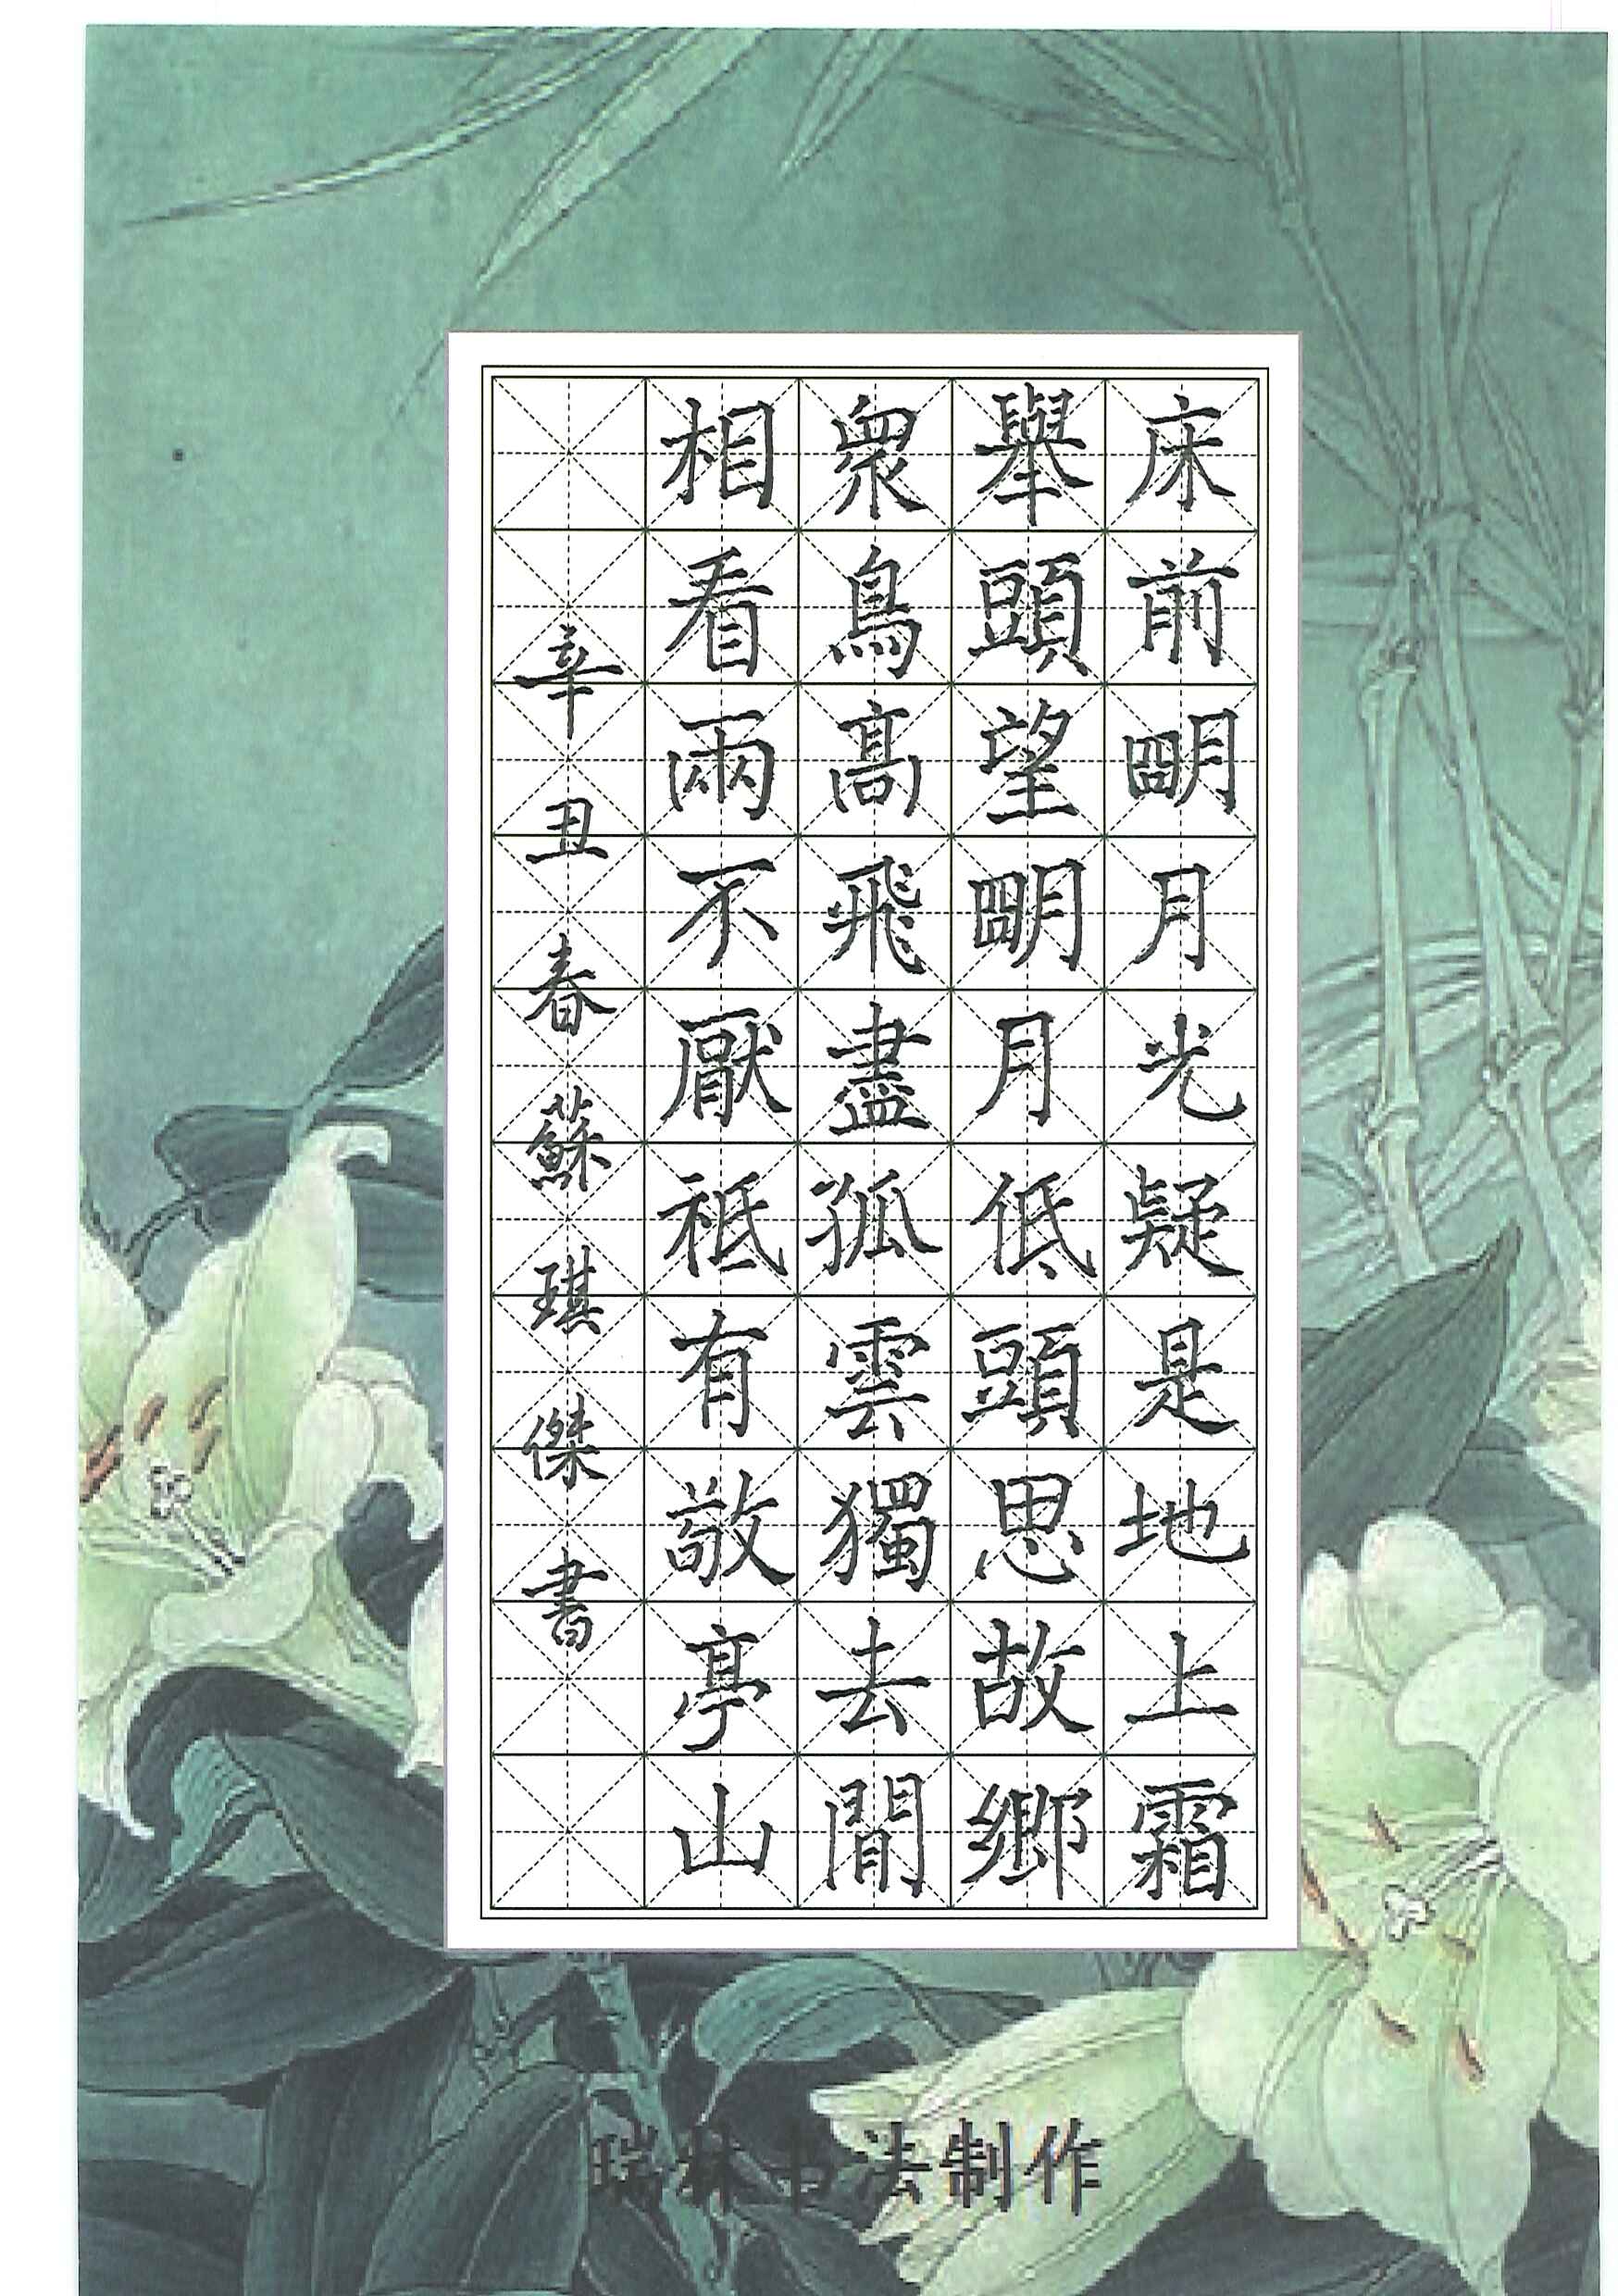 床前朙月光疑是地上霜
舉頭望朙月低頭思故鄉
衆鳥高飛盡孤雲獨去閒
相看兩不厭祗有敬亭山
辛丑春蘇琪傑書
瑞林书法制作